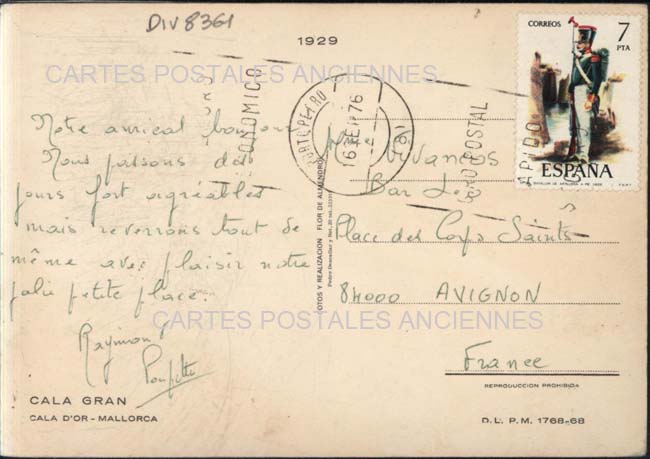 DIV 8361
1929
CORREOS
7
PTA
ESPAÑA
CARTES POSTALES ANCIENNES
ECONOMICO
16 FEB 76
GIRO POSTAL
RAPIDO
Notre amical bonjour
Nous passons des
jours fort agréables
mais reverrons tout de
même avec plaisir notre
jolie petite place.
Raymond
Poupette
Vivancos
Bar Le
Place des Corps Saints
84000 AVIGNON
France
CARTES POSTALES ANCIENNES
FOTOS Y REALIZACION FLOR DE ALMENDRO
REPRODUCCION PROHIBIDA
CALA GRAN
CALA D'OR - MALLORCA
D.L. P.M. 1768-68